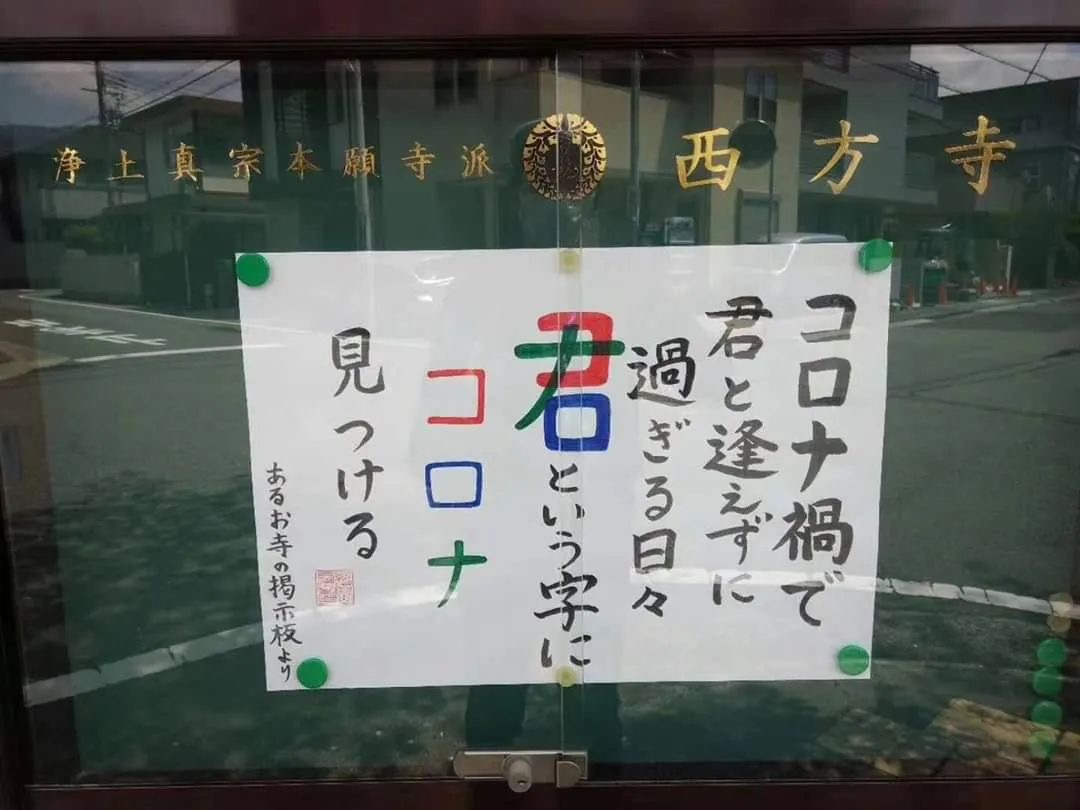 浄土真宗本願寺派 西方寺
コロナ禍で
君と逢えずに
過ぎる日々
君という字に
コロナ
見つける
あるお寺の掲示板より